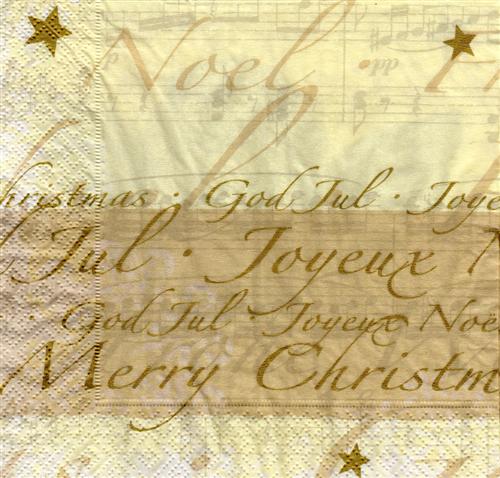 Noel
hristmas · God Jul · Joye
Jul · Joyeux N
· God Jul · Joyeux Noë
Merry Christm